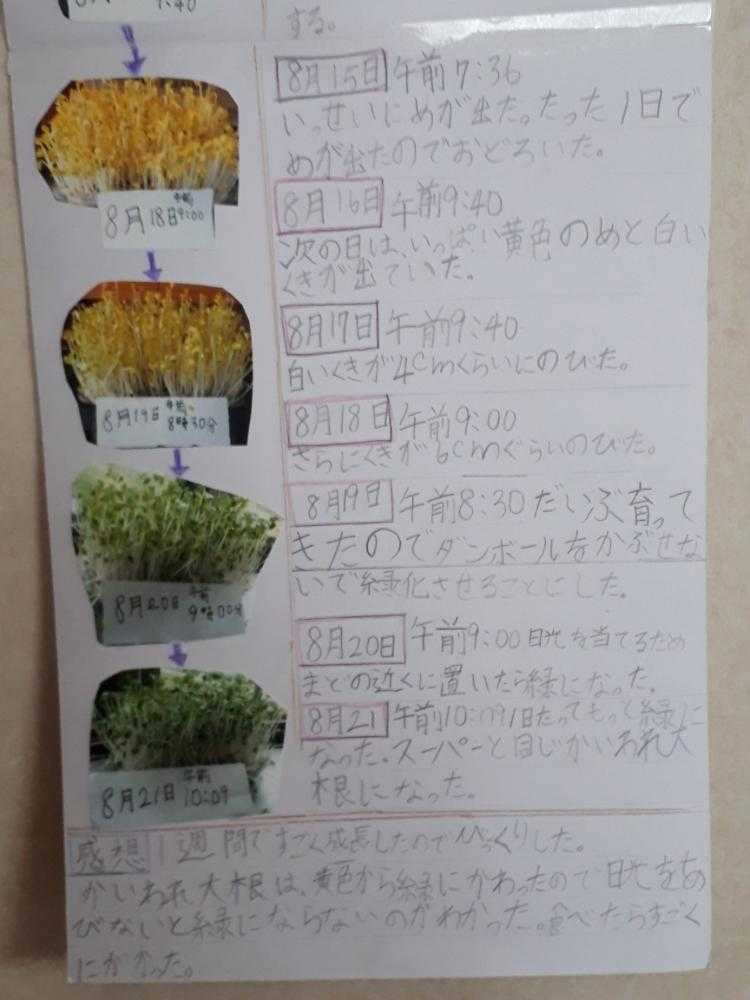 9:40
する。
8月15日 午前7:36
いっせいにめが出た。たった1日で
めが出たのでおどろいた。
8月16日 午前9:40
次の日は、いっぱい黄色のめと白い
くきが出ていた。
8月17日 午前9:40
白いくきが4cmくらいにのびた。
8月18日 午前9:00
さらにくきが6cmぐらいのびた。
8月19日 午前8:30 だいぶ育って
きたのでダンボールをかぶせな
いで緑化させることにした。
8月20日 午前9:00 日光を当てるため
まどの近くに置いたら緑になった。
8月21 午前10:09 1日たってもっと緑に
なった。スーパーと同じかいわれ大
根になった。
午前
8月18日9:00
午前
8月19日 8時30分
午前
8月20日 9時00分
午前
8月21日 10:09
感想 1週間ですごく成長したのでびっくりした。
かいわれ大根は、黄色から緑にかわったので日光をあ
びないと緑にならないのがわかった。食べたらすごく
にがかった。